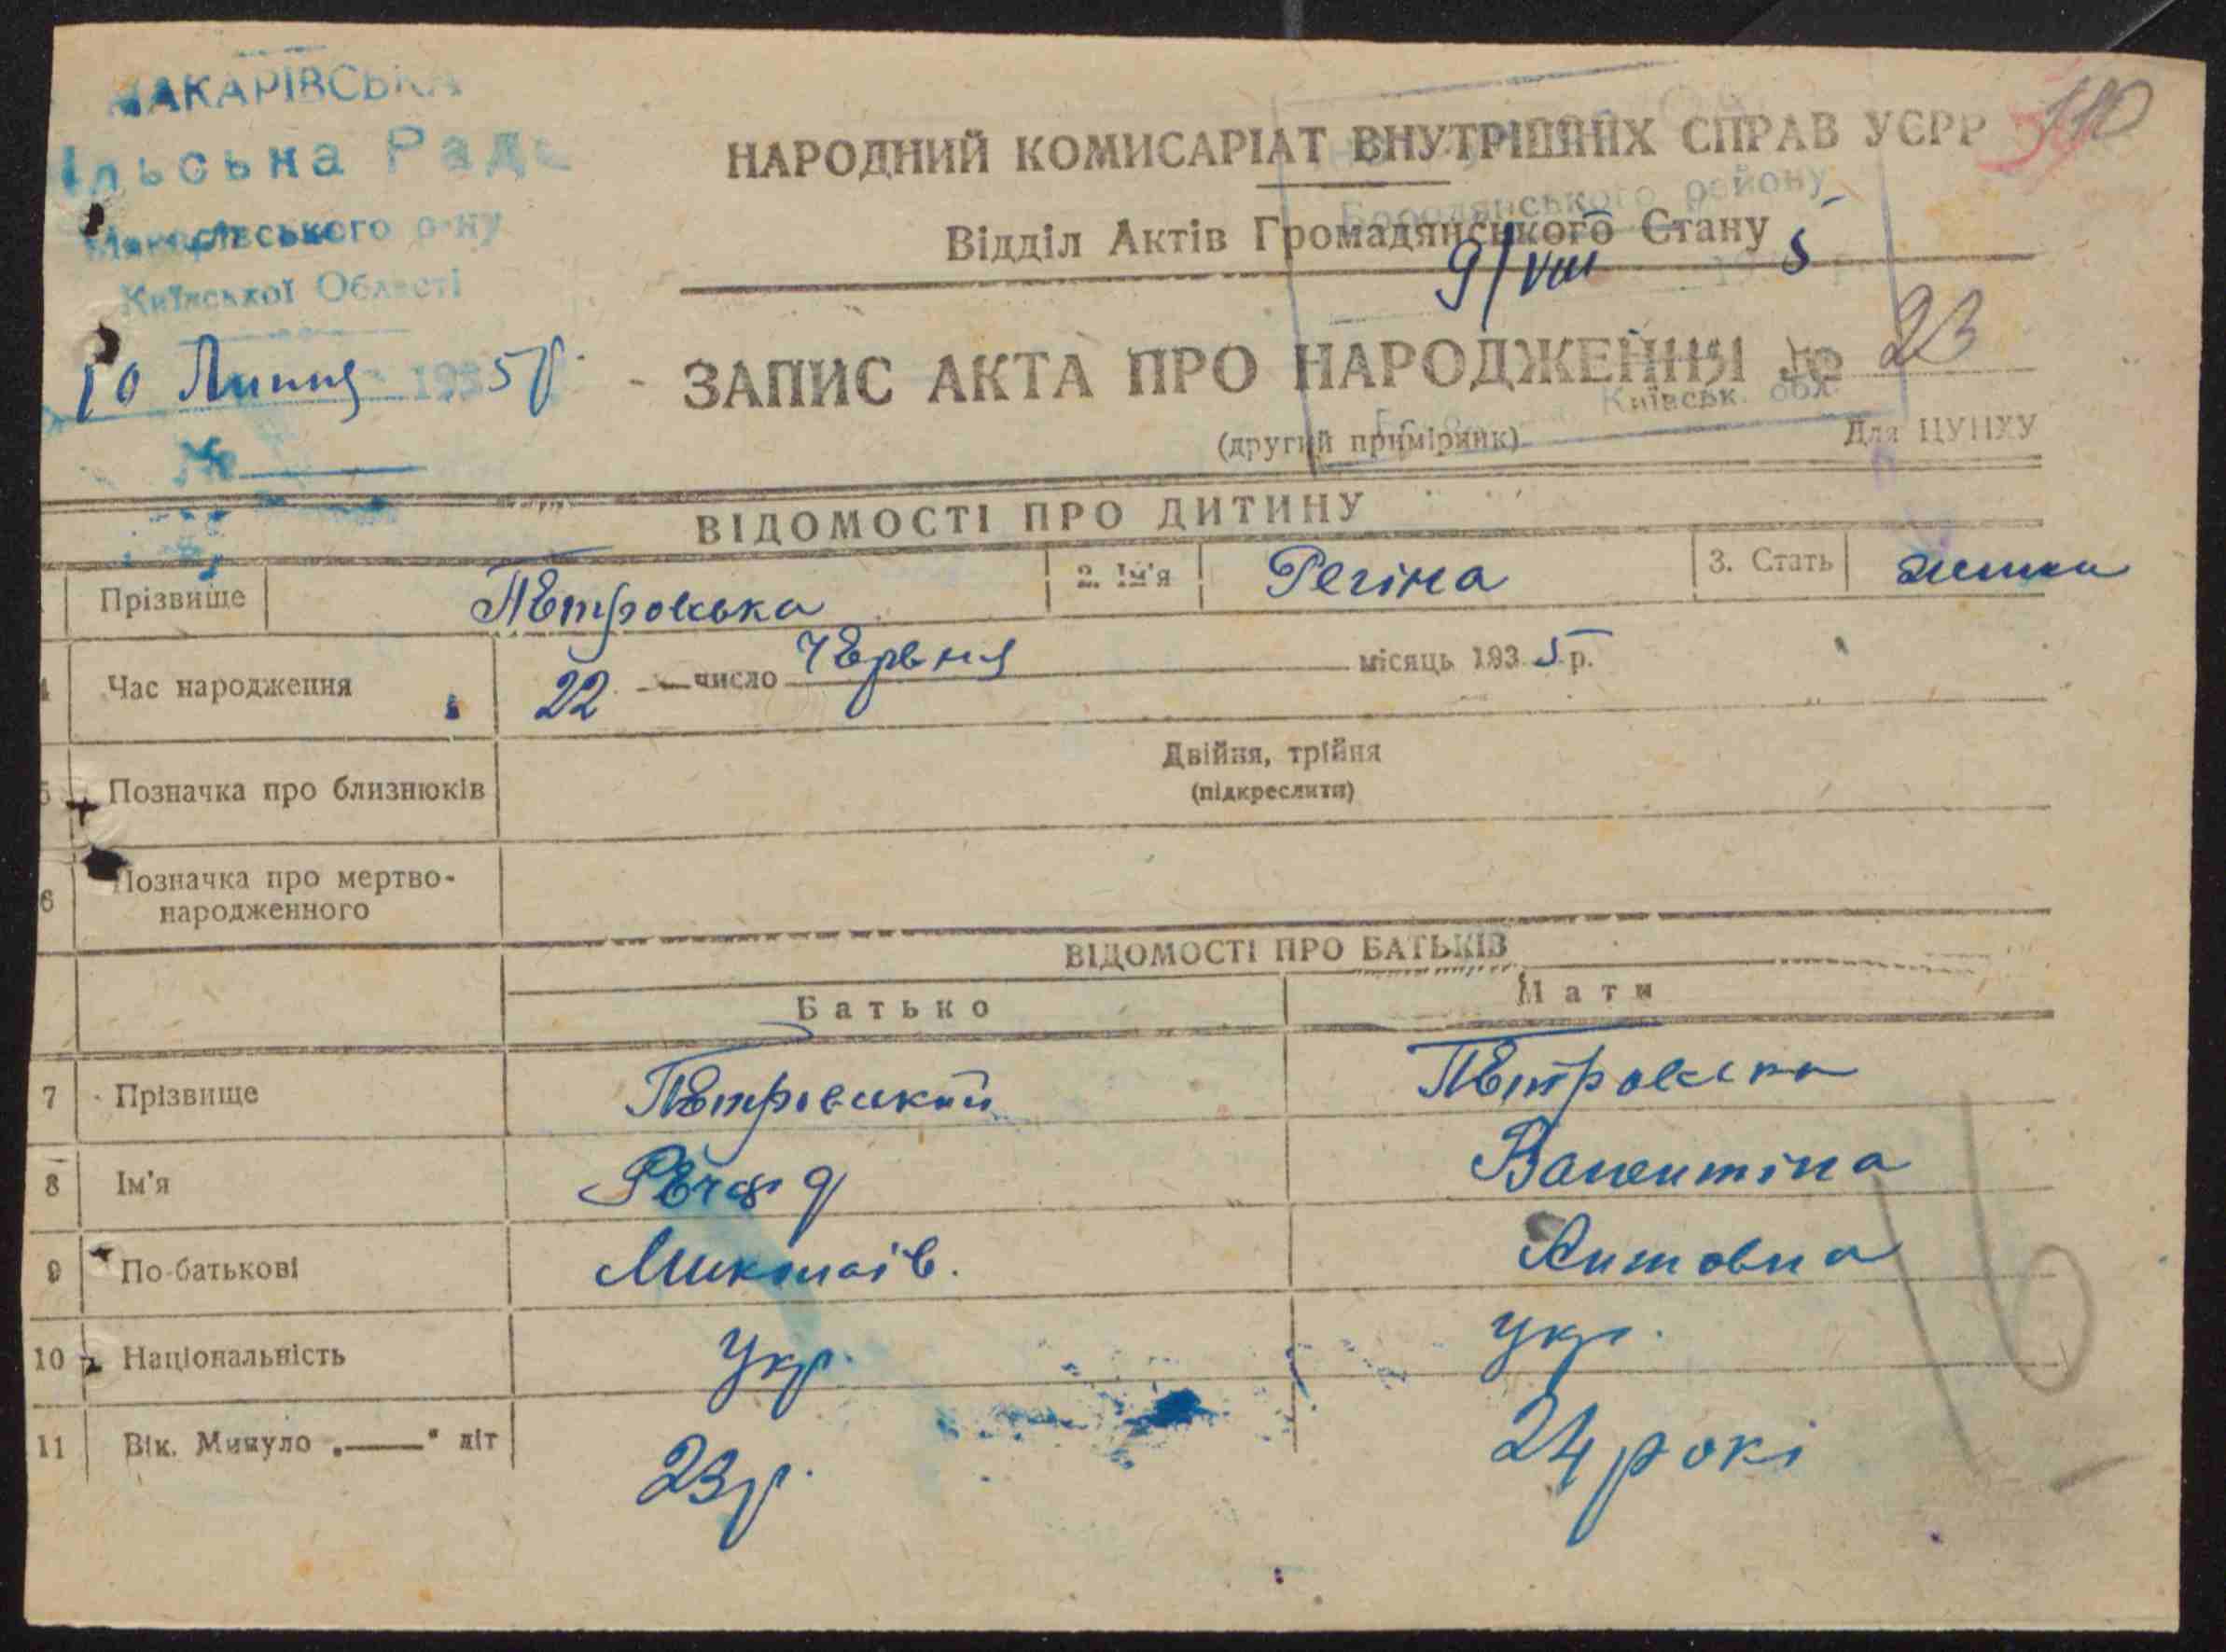 МАКАРІВСЬКА
ільська Рада
Макарівського р-ну
Київської Области
10 Липня 1935р.
№
110
НАРОДНИЙ КОМИСАРІАТ ВНУТРІШНІХ СПРАВ УСРР
Бородянського району
Відділ Актів Громадянського Стану
9/VIII 5
ЗАПИС АКТА ПРО НАРОДЖЕННЯ № 23
Київськ. обл.
(другий примірник)
Для ЦУНХУ
ВІДОМОСТІ ПРО ДИТИНУ
Прізвище Петровська 2. Ім'я Регіна 3. Стать жіноча
Час народження 22 число Червня місяць 1935 р.
5 Позначка про близнюків Двійня, трійня
(підкреслити)
6 Позначка про мертво-
народженного
ВІДОМОСТІ ПРО БАТЬКІВ
Батько Мати
7 Прізвище Петровський Петровська
8 Ім'я Валентіна
9 По-батькові Миколаїв. Антовна
10 Національність Укр. Укр.
11 Вік. Минуло „—" літ 23р. 24 рокі
16